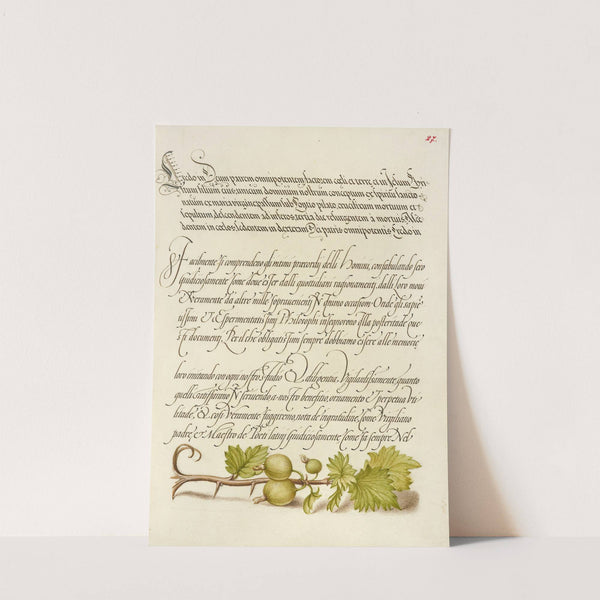 27.
Credo in Deum patrem omnipotentem factorem cœli et terre, et in Jesum
filium eius unicum dominum nostrum conceptum ex spiritu sancto
natum ex maria virgine passum sub Pontio pilato, crucifixum mortuum et
sepultum descendentem ad inferos tertia die resurgentem à mortuis
in cœlos sedentem in dextera Dei patris omnipotentis Credo in
Facilmente si comprendeno gli intimi precordij delli Homini, confabulando sero
giudiciosamente some deue esser dalli quottidiani ragionamenti, dalli loro moui
Veramente da altre mille soprauenienti occasioni Onde gli sapie
tissimi et Esperimentatissimi Philosophi insegnorono Alla posteritade que
sti documenti, Per il che obligatissimi sempre dobbiamo essere alle memorie
loro imitando con ogni nostro studio Et dilligentia, Vigilantissimamente quanto
quelli a nostro benefitio, ornamento et perpetua
& cosi Veramente fuggiremo nota de ingratitudine, some Virgiliano
padre, & Maestro de Poeti latini giudiciosamente some fa sempre, Nel